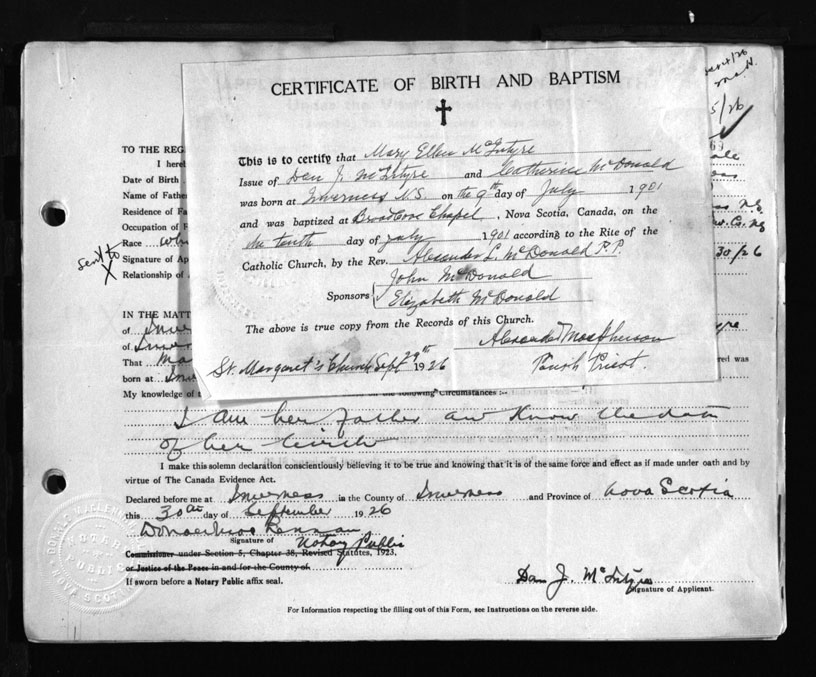 CERTIFICATE OF BIRTH AND BAPTISM
This is to certify that Mary Ellen McIntyre
Issue of Dan J. McIntyre and Catherine McDonald
was born at Inverness N.S. on the 9th day of July 1901
and was baptized at Broad Cove Chapel, Nova Scotia, Canada, on the
the tenth day of July 1901 according to the Rite of the
Catholic Church, by the Rev. Alexander L. McDonald P.P.
John McDonald
Sponsors
Elizabeth McDonald
The above is true copy from the Records of this Church.
Alexander Macpherson
St. Margaret's Church Sept 29th 1926 Parish Priest.
5/26
69
TO THE REG
I herel
Date of Birth
Name of Father
Residence of Fa
Occupation of F
Race Whi
sent to X
Signature of Ap 30/26
Relationship of
IN THE MATT
of Inve
of Inver
That Ma red was
born at Inv
My knowledge of t of the following Circumstances :—
I am her father and know the date
of her birth
I make this solemn declaration conscientiously believing it to be true and knowing that it is of the same force and effect as if made under oath and by
virtue of The Canada Evidence Act.
Declared before me at Inverness in the County of Inverness and Province of Nova Scotia
this 30th day of September 1926
Signature of Notary Public
Commissioner under Section 5, Chapter 38, Revised Statutes, 1923.
or Justice of the Peace in and for the County of
If sworn before a Notary Public affix seal.
Dan J. McIntyre
Signature of Applicant.
For Information respecting the filling out of this Form, see Instructions on the reverse side.